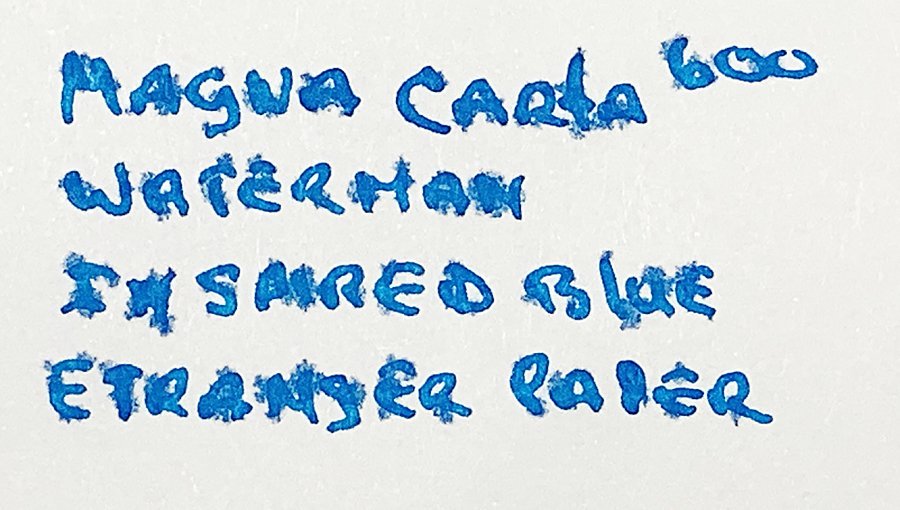 MAGNA CARTA 600
WATERMAN
INSPIRED BLUE
ETRANGER PAPER